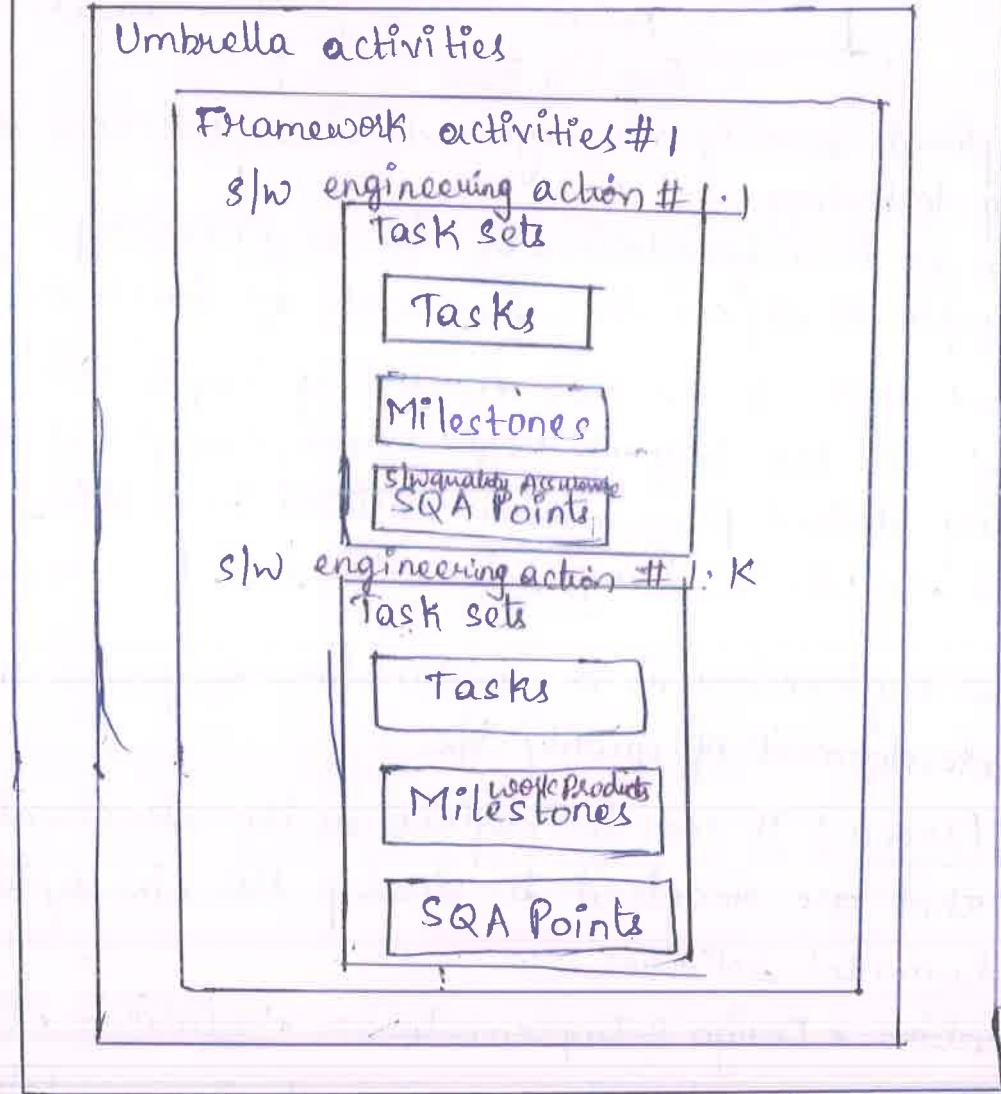 Umbrella activities
Framework activities #1
s/w engineering action #1.1
Task sets
Tasks
Milestones
s/w quality Assurance
SQA Points
s/w engineering action #1.K
Task sets
Tasks
Work Products
Milestones
SQA Points